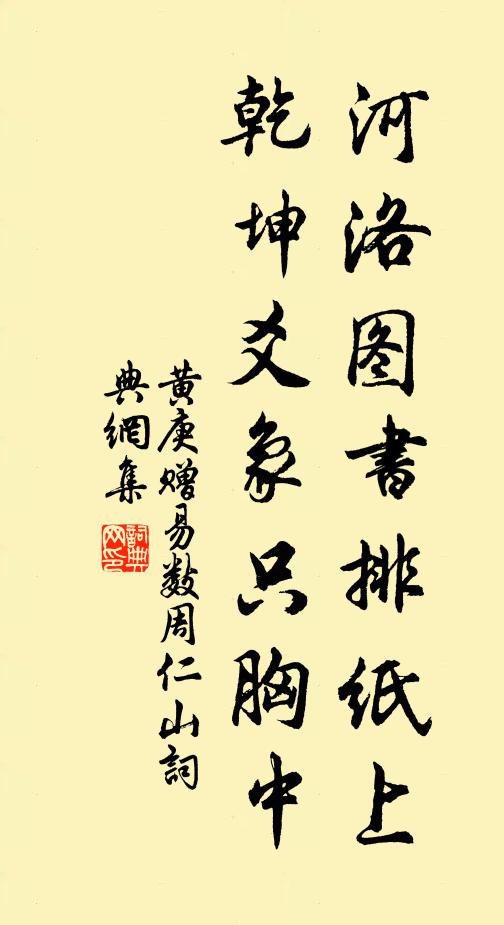 河洛图書排紙上
乾坤爻象只胸中
黄庚赠易数周仁山詞
典網集
詞典網印